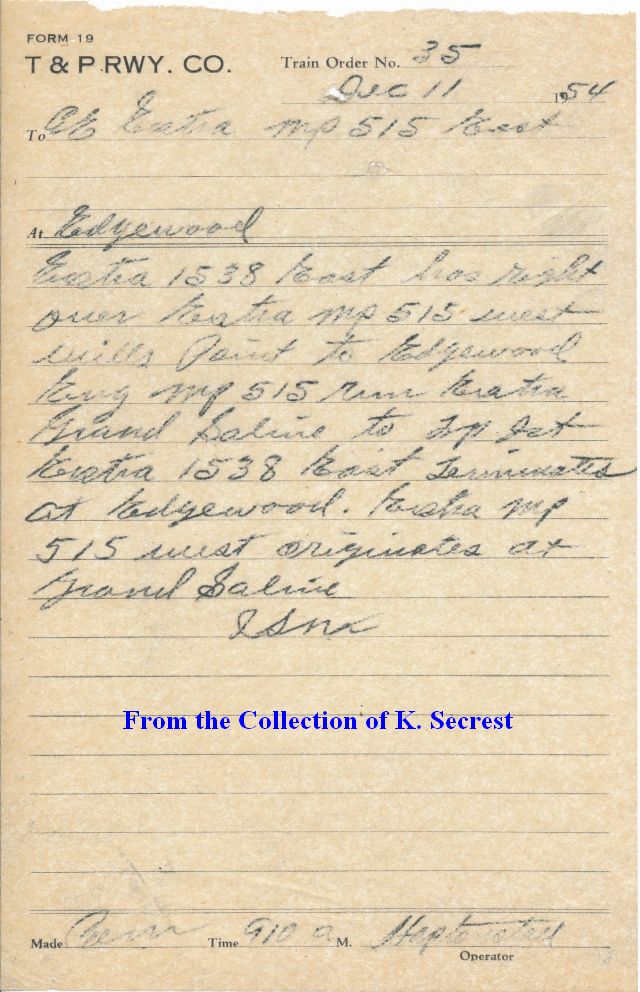 FORM 19
T & P. RWY. CO.
Train Order No. 35
Dec 11 1954
To CE Extra MP 515 East
At Edgewood
Extra 1538 East has right
over Extra MP 515 west
Wills Point to Edgewood
Eng MP 515 run Extra
Grand Saline to
Extra 1538 East Terminates
at Edgewood. Extra MP
515 west originates at
Grand Saline
From the Collection of K. Secrest
Made Com Time 910 a M.
Operator